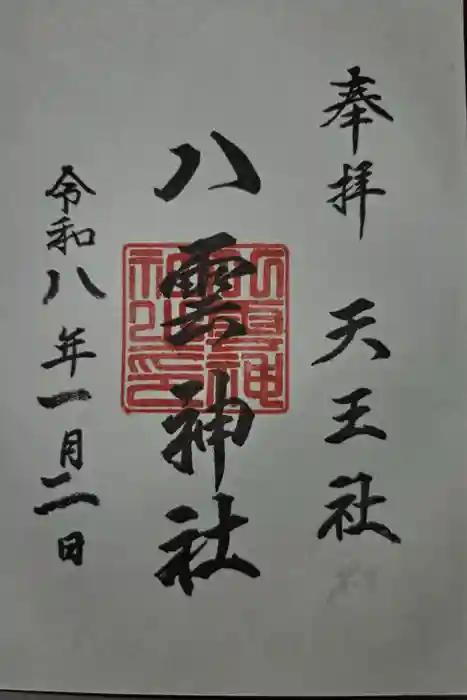 奉拝 天王社
八雲神社
令和八年一月二日